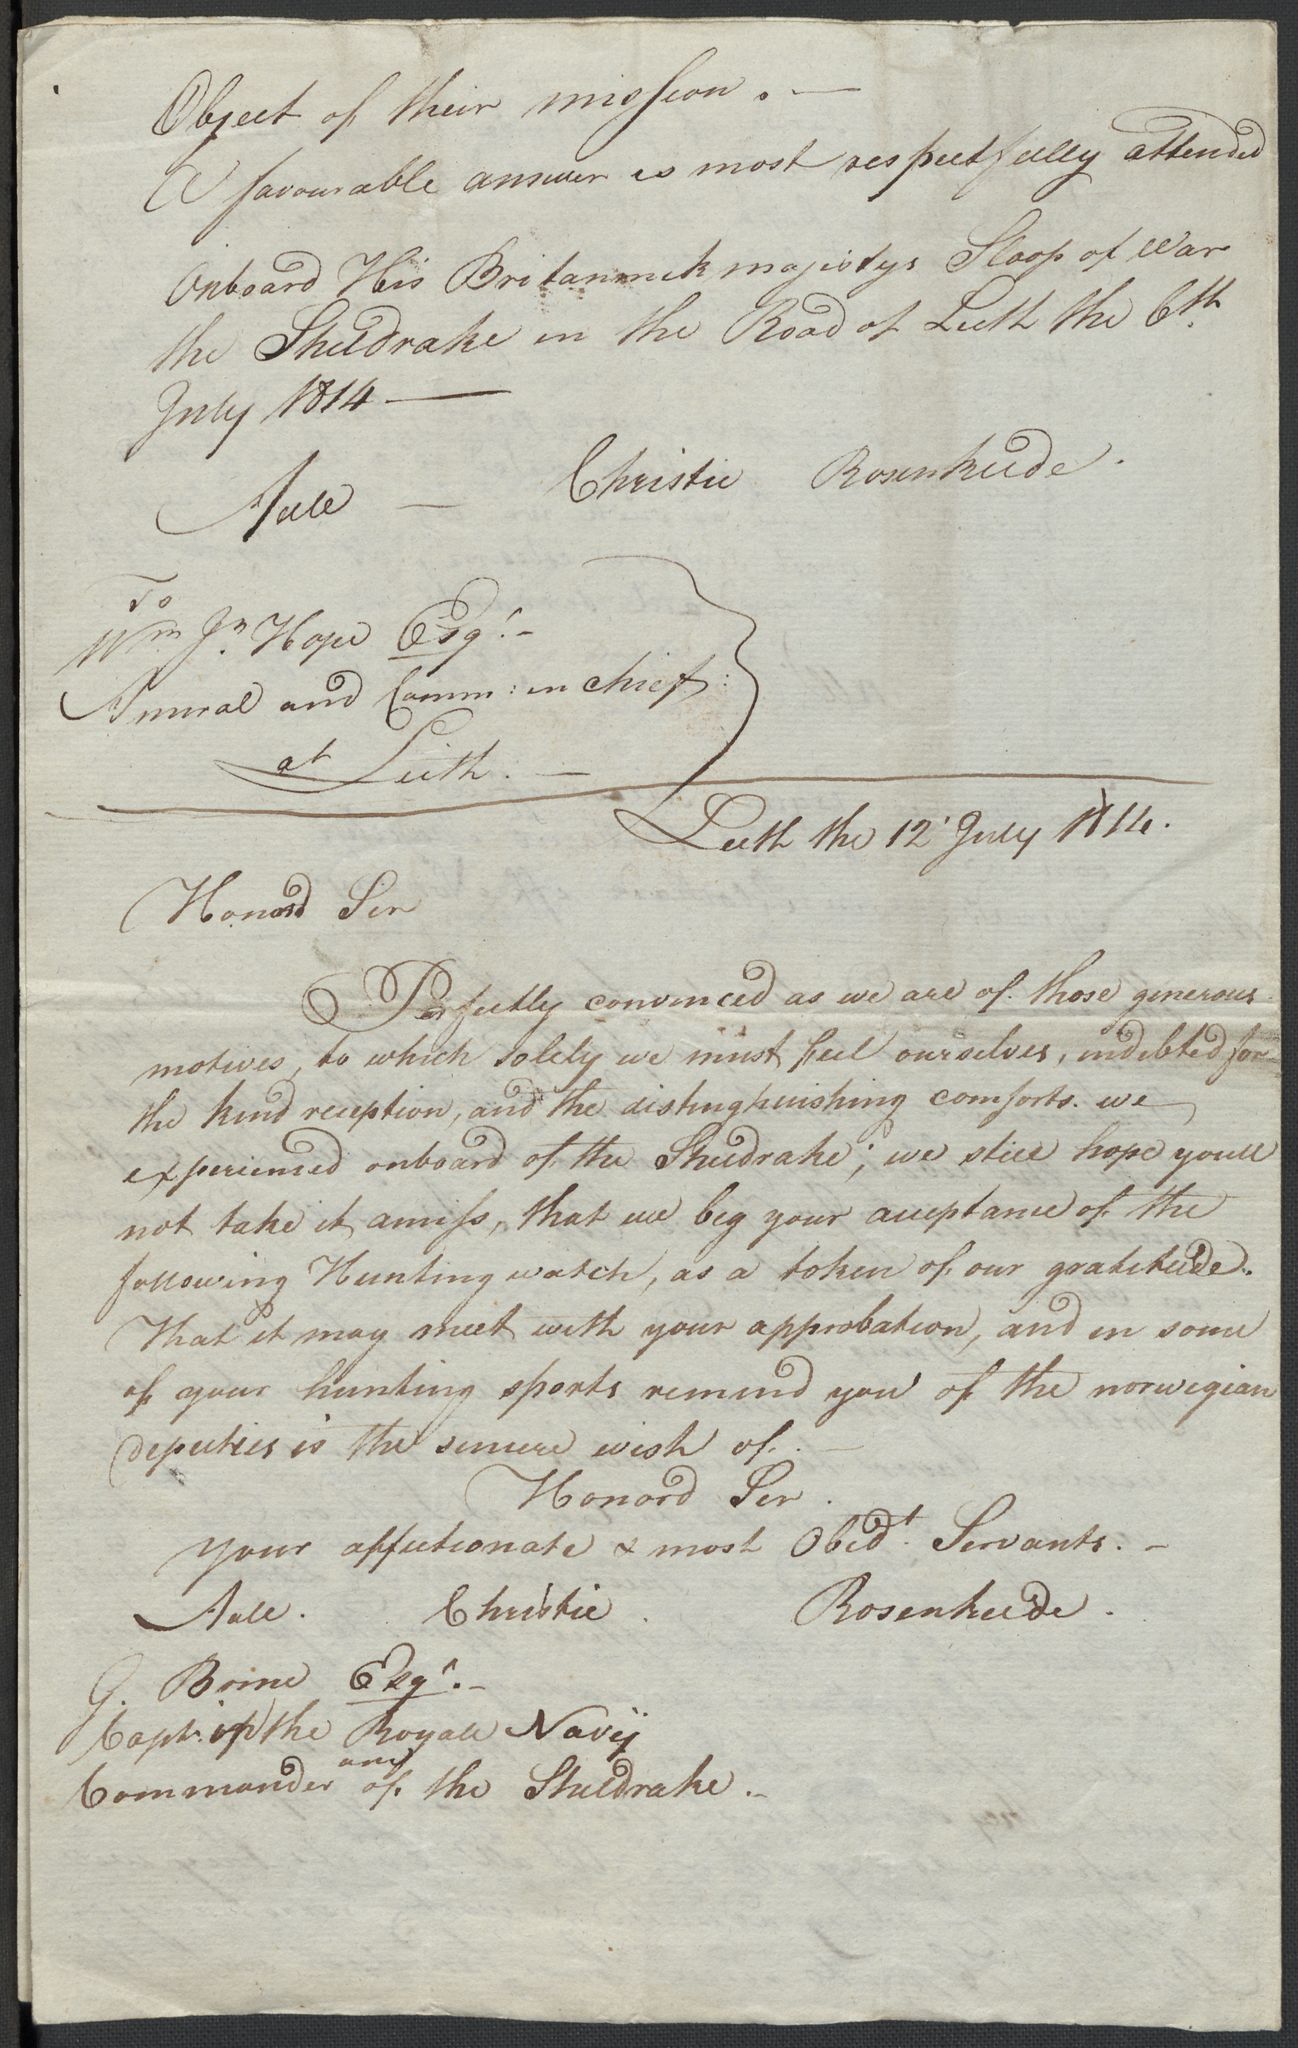 Object of their mission. —
A favourable answer is most respectfully attended
Onboard His Britannick majistys Sloop of War
the Sheldrake in the Road of Leith the 6th
July 1814 —
Aall — Christie Rosenkilde.
To
Wm Jn Hope Esqr. -
Amiral and Comm: in chief:
at Leith. —
Leith the 12 July 1814.
Honord Sir
Perfectly convinced as we are of those generous
motives, to which solely we must feel ourselves, indebted for
the kind reception, and the distinghuishing comforts. we
experienced onboard of the Sheldrake; we still hope youll
not take it amiss, that we beg your acceptance of the
following Hunting watch, as a token of our gratitude.
That it may meet with your approbation, and in some
of your hunting sports remind you of the norwegian
deputies is the sincere wish of. —
Honord Sir.
your affectionate & most Obedt. Servants. -
Aall. Christie. Rosenkilde.
G. Brine Esqr. -
Capt. of the Royall Navij
and
Commander of the Sheldrake. -